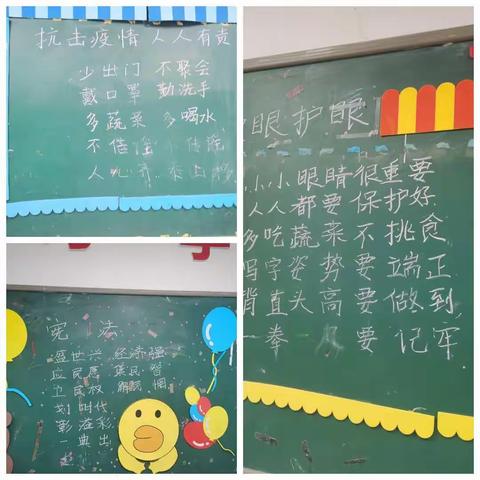 抗击疫情 人人有责
少出门 不聚会
戴口罩 勤洗手
多蔬菜 多喝水
不信谣
人心齐
眼护眼
小小眼睛很重要
人人都要保护好
多吃蔬菜不挑食
写字姿势要端正
背直头高要做到
一拳 要记牢
宪法
盛世兴 经济强
应民愿 集民智
卫民权
划时代
彰浩彩
一典出